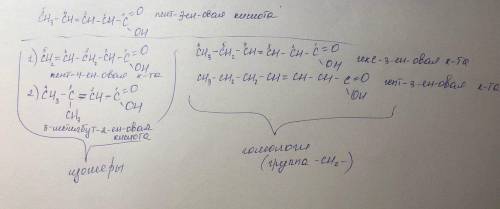 CH₃-CH=CH-CH-C=O
OH
пент-3-ен-овая кислота
1) CH₂=CH-CH₂-CH₂-C=O
OH
пент-4-ен-овая к-та
2) CH₃-C=CH-C=O
OH
CH₃
3-метилбут-2-ен-овая
кислота
изомеры
CH₃-CH₂-CH=CH-CH-C=O
OH
гекс-3-ен-овая к-та
CH₃-CH₂-CH₂-CH=CH-CH-C=O
OH
гепт-3-ен-овая к-та
гомологи
(группа -CH₂-)